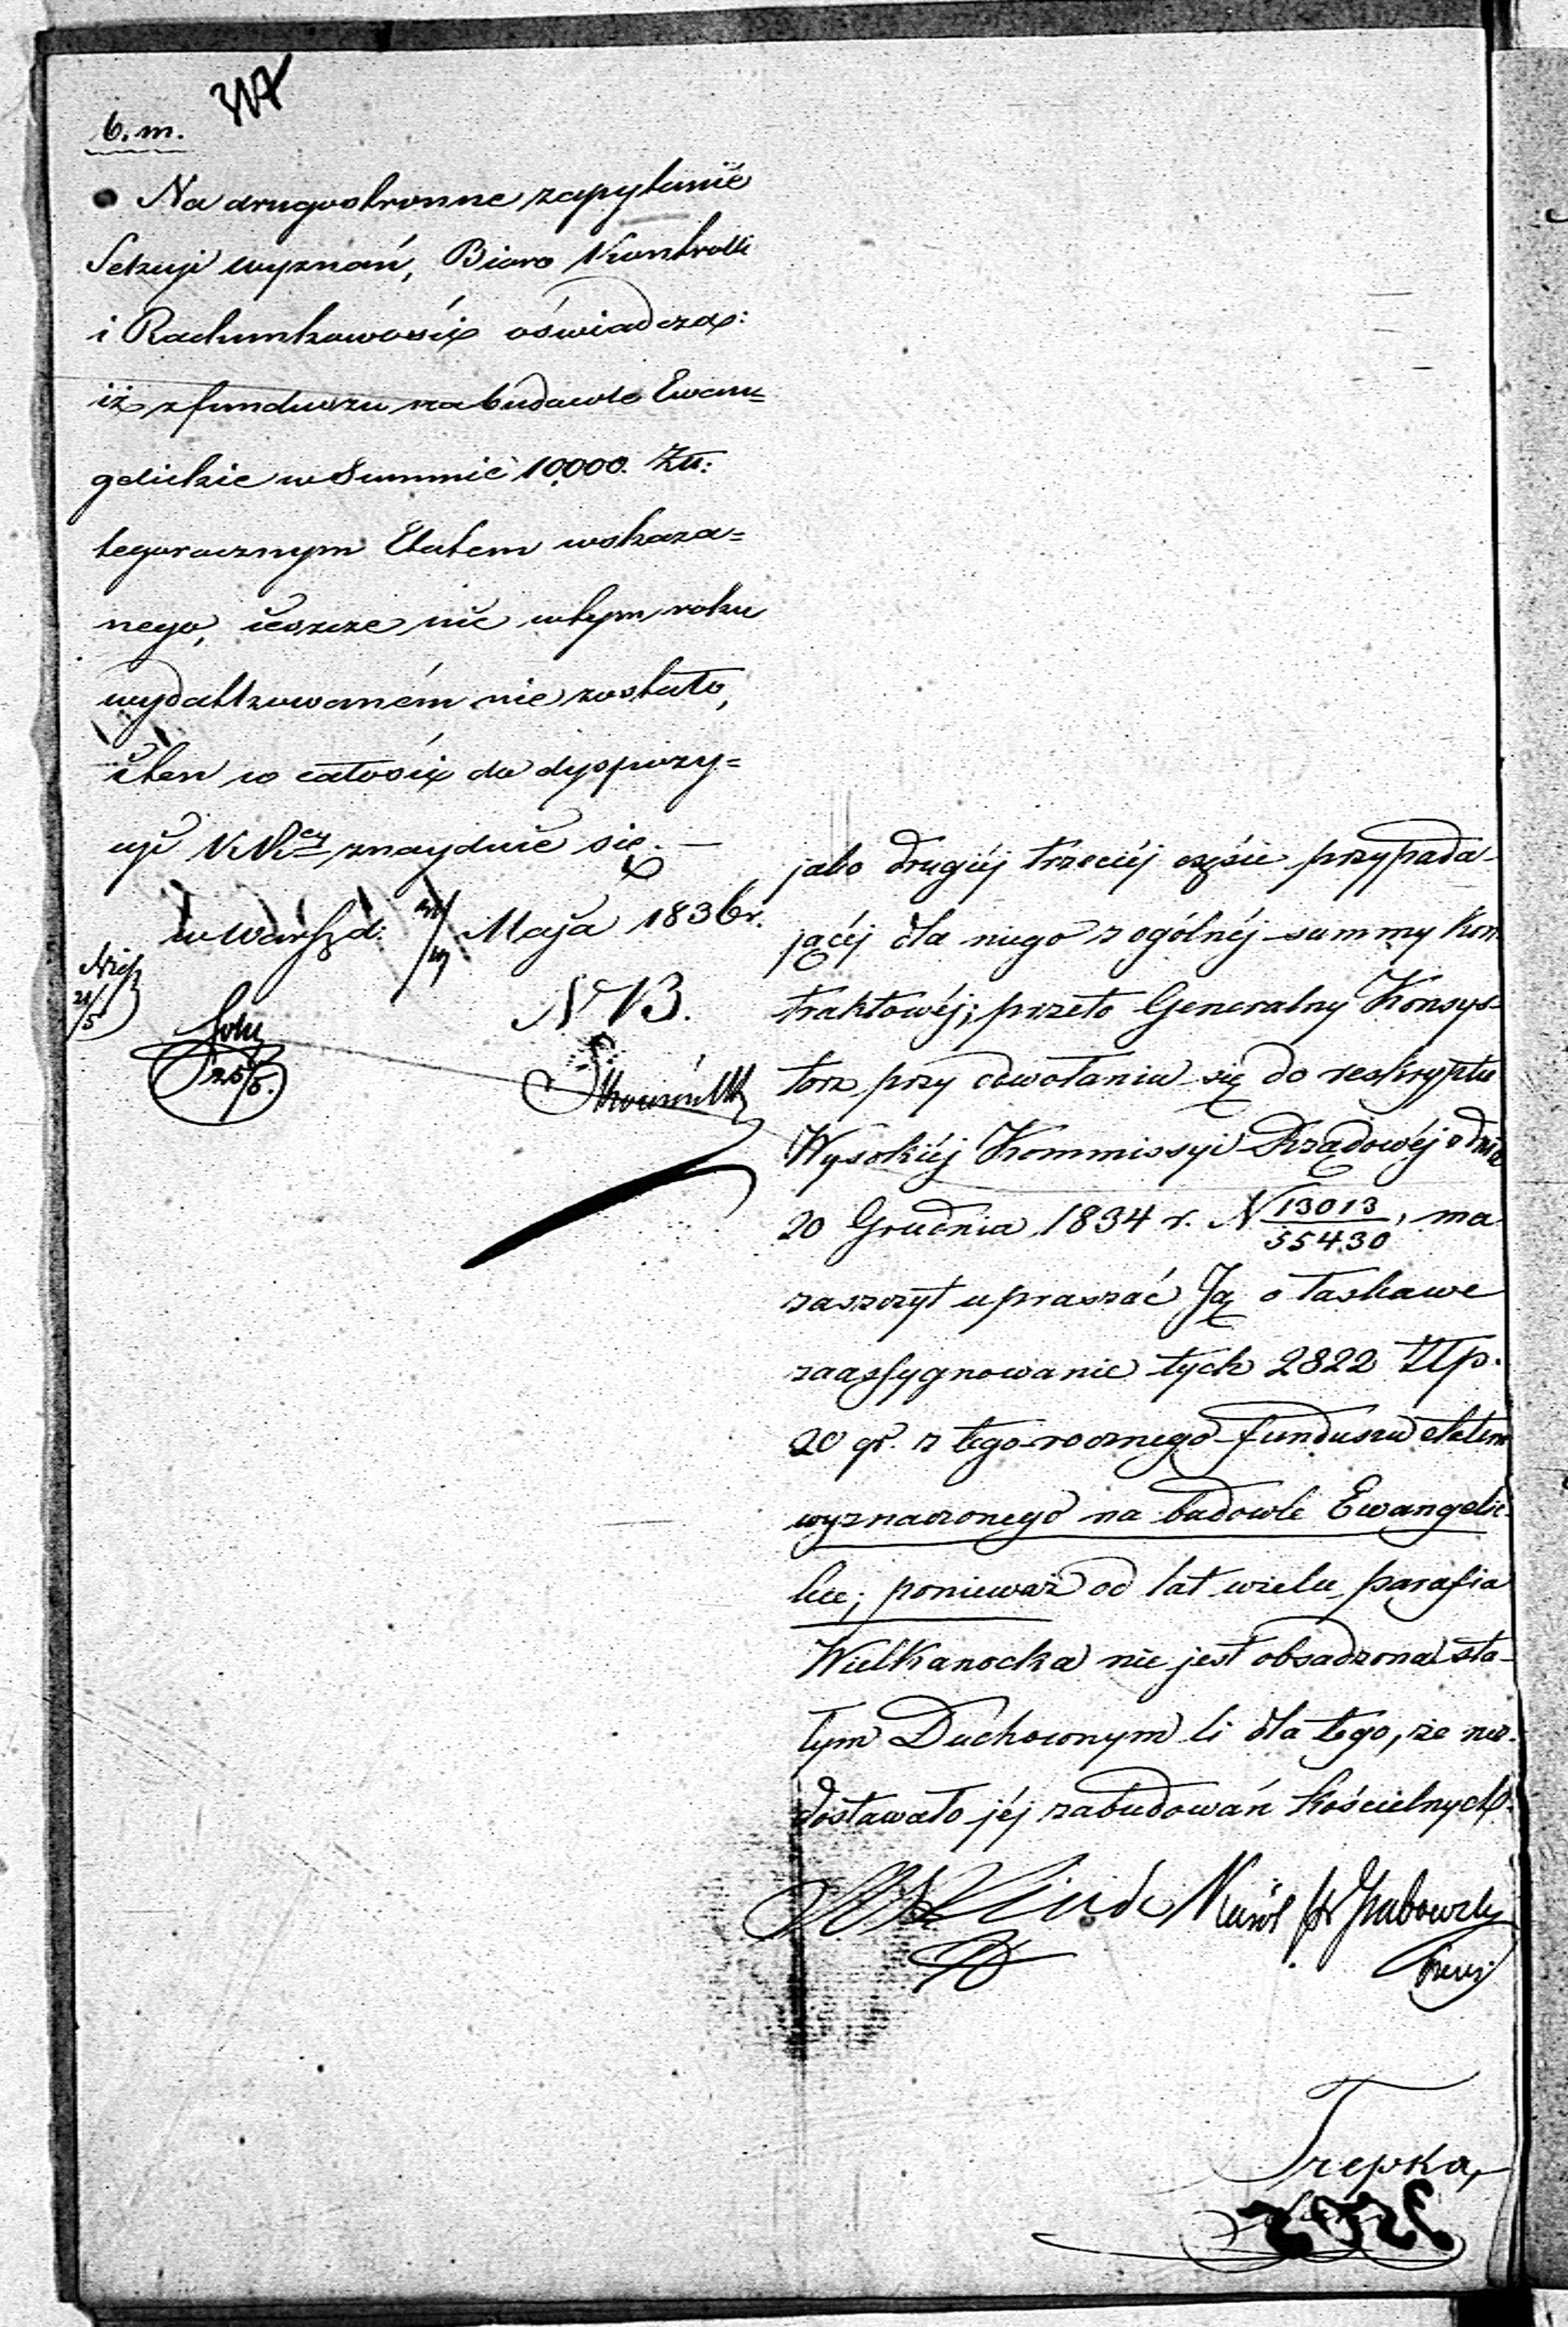 317
b. m.
Na drugostronne zapytanie
Sekcyi wyznań, Biuro Kontrolli
i Rachunkowości oświadcza:
iż z funduszu na budowle Ewan=
gelickie w Summie 10,000. Złł:
tegorocznym Etatem wskaza=
nego, ieszcze nic w tym roku
wydatkowaném nie zostało,
i ten w całości do dyspozy=
cyi KRcy znayduie się. —
w Warsz d. Maja 1836 r.
21/5
N 13.
25/5.
jako drugiéj trzeciéj części przypada-
jącéj dla niego z ogólnéj summy kon-
traktowéj; przeto Generalny Konsys-
torz przy odwołaniu się do reskryptu
Wysokiéj Kommissyi Rządowéj z dnia
20 Grudnia 1834 r. N 13013/55430, ma
zaszczyt upraszać Ją o łaskawe
zaassygnowanie tych 2822 Złp.
20 gr. z tego-rocznego funduszu etatem
wyznaczonego na budowle Ewangelic-
kie; ponieważ od lat wielu parafia
Wielkanocka nie jest obsadzona sta-
łym Duchownym li dla tego, że nie-
dostawało jéj zabudowań kościelnych.
Karol hr Grabowski
Trepka,